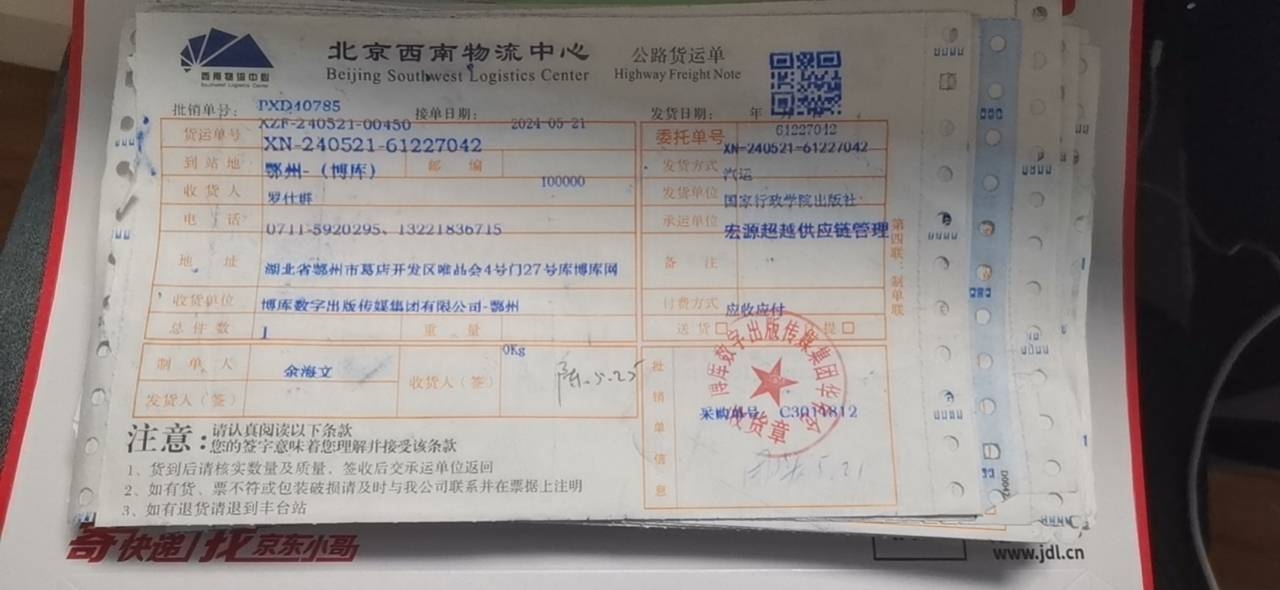 西南物流中心
Southwest Logistics Center
北京西南物流中心
Beijing Southwest Logistics Center
公路货运单
Highway Freight Note
批销单号： PXD40785 接单日期： 2024-05-21 发货日期： 年
XZF-240521-00450
货运单号 XN-240521-61227042
委托单号 61227042
XN-240521-61227042
到站地 鄂州-（博库） 邮编 100000
发货方式 汽运
收货人 罗仕群
发货单位 国家行政学院出版社
电话 0711-5920295、13221836715
承运单位 宏源超越供应链管理
地址 湖北省鄂州市葛店开发区唯品会4号门27号库博库网
备注
收货单位 博库数字出版传媒集团有限公司-鄂州
付费方式 应收应付
总件数 1 重量 0Kg
送货□ 提□
制单人 余海文 收货人（签） 陈.5.25
发货人（签）
批销单信息
采购单号 C3011812
博库数字出版传媒集团华
收货章
5.21
第四联：制单联
注意： 请认真阅读以下条款
您的签字意味着您理解并接受该条款
1、货到后请核实数量及质量，签收后交承运单位返回
2、如有货、票不符或包装破损请及时与我公司联系并在票据上注明
3、如有退货请退到丰台站
寄快递 找京东小哥
www.jdl.cn